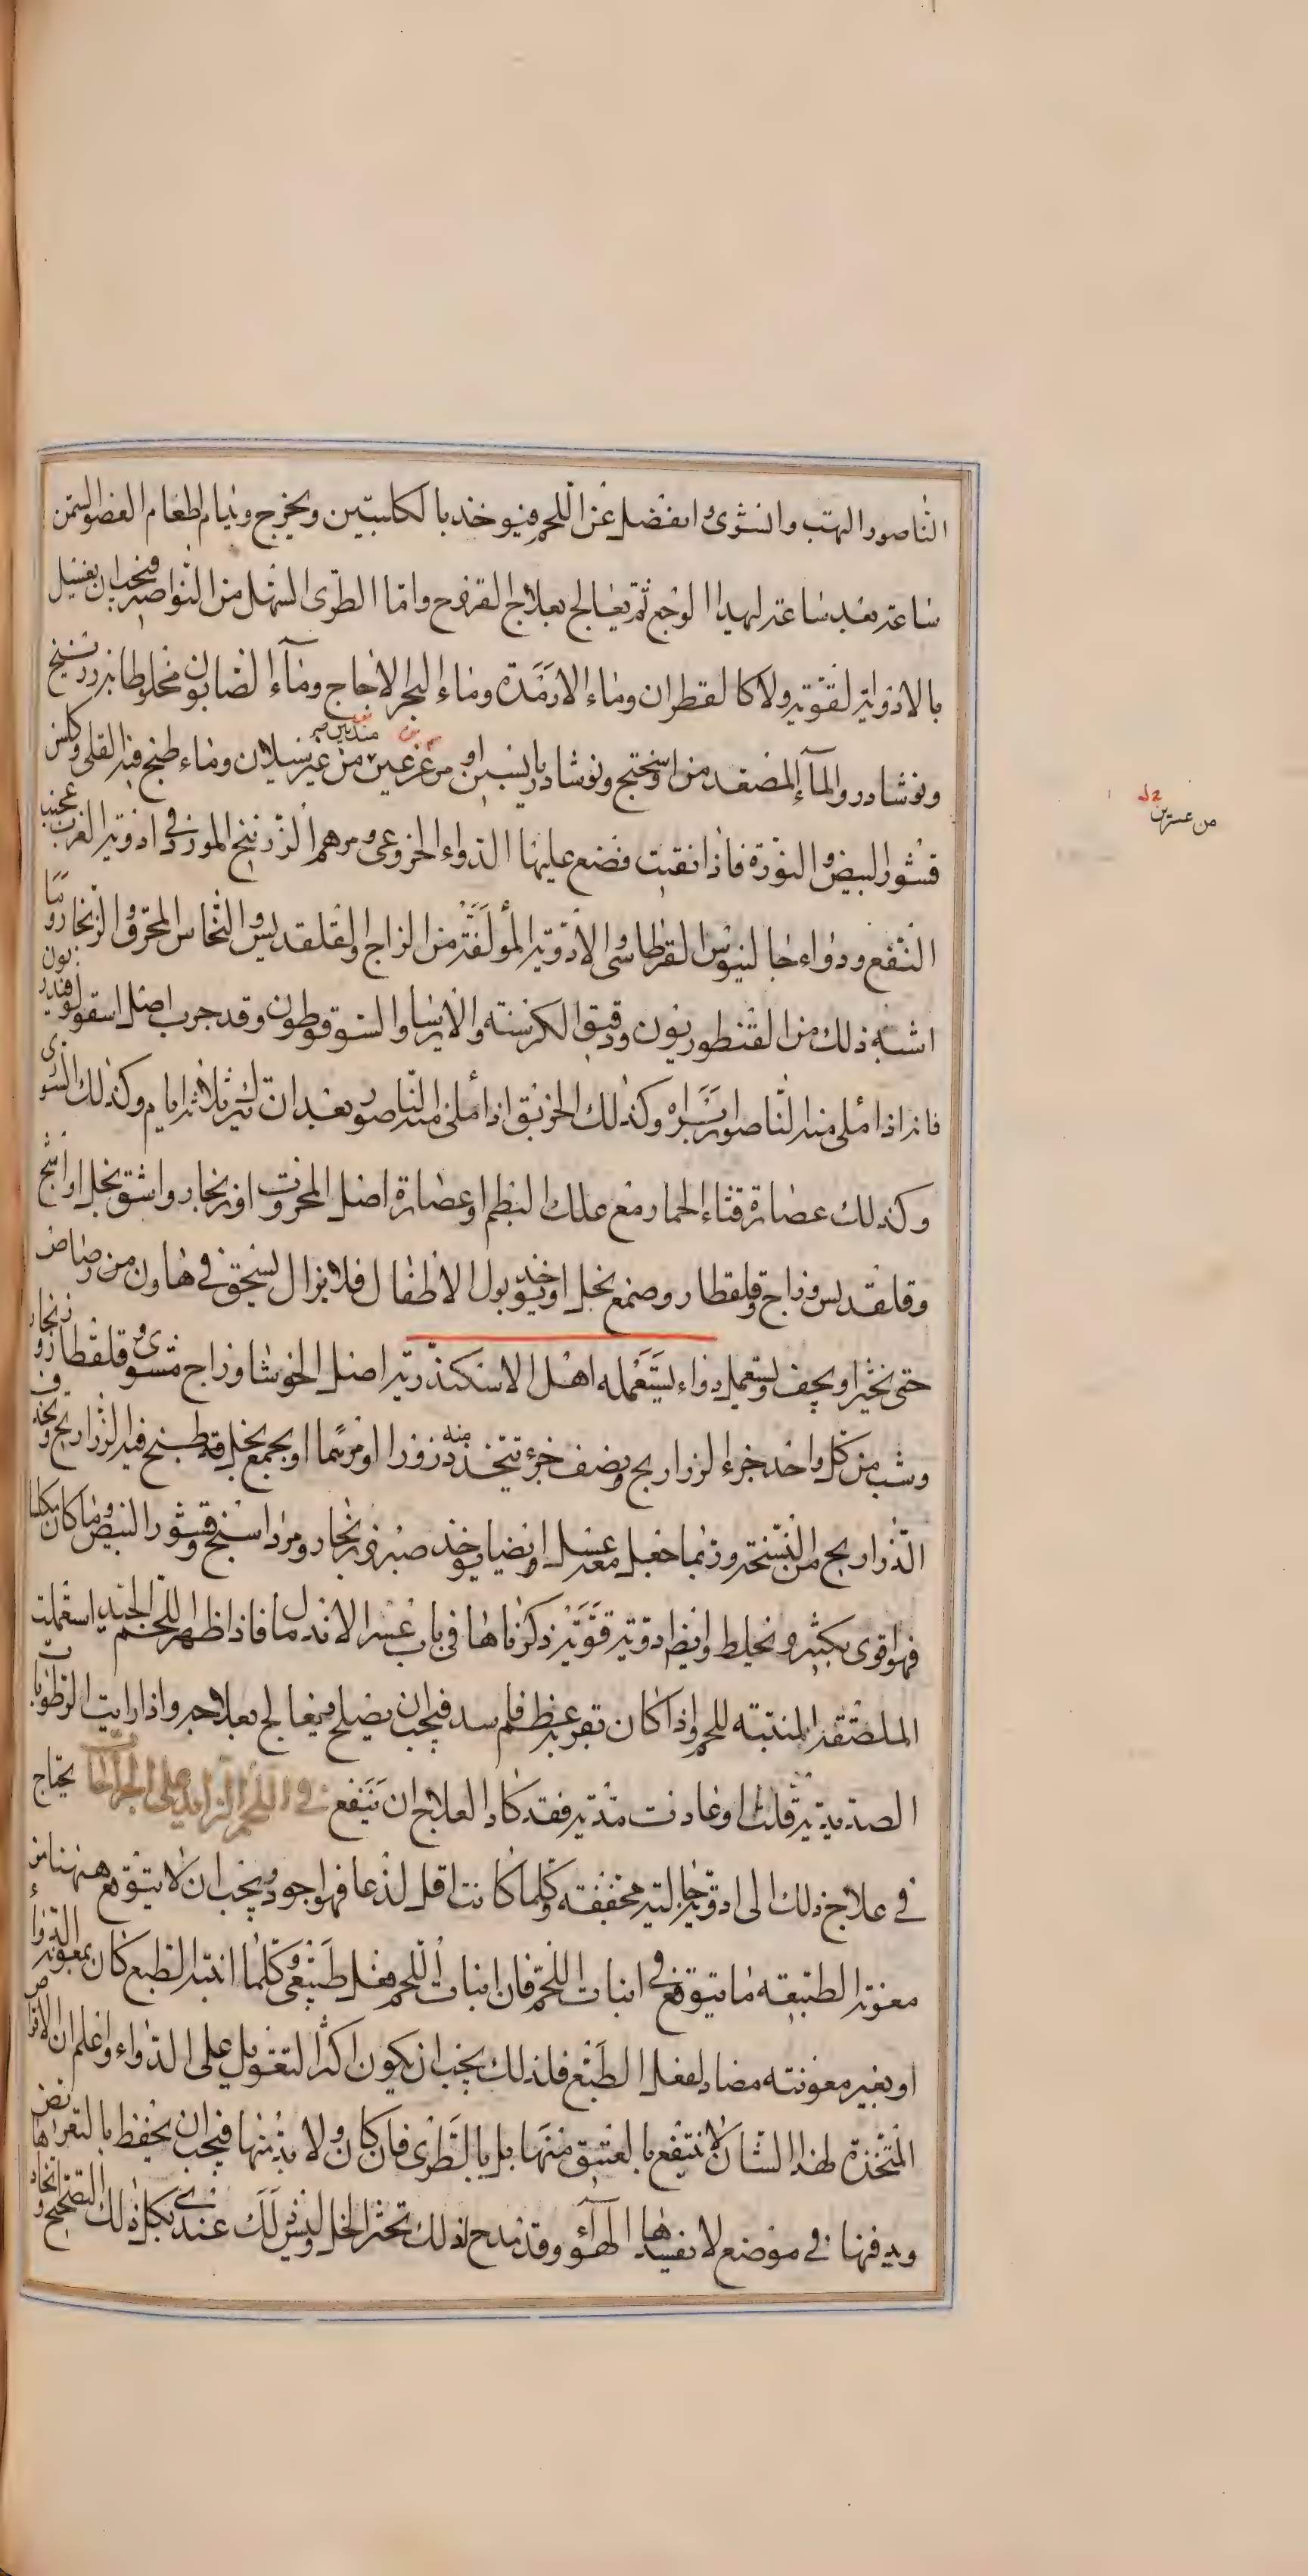 الناصور التهب وانشوى وانفصل عن اللحم فيوخذ بالكلبتين ويخرج ويدام اطعام العضو السمن
ساعة بعد ساعة ليهدا الوجع ثم يعالج بعلاج القروح واما الطرى السهل من النواصير فيجب ان يغسل
بالادوية القوية ولا كالقطران وماء الارمدة وماء البحر الاجاج وماء الصابون مخلوطا بزرنيخ
ونوشادر والماء المصعد من اسختج ونوشادر يابسين او مرغرغين من غير سيلان وماء طبخ فيه القلى وكلس
قشور البيض والنورة فاذا نقيت فضع عليها الدواء الخروعى ومرهم الزرنيخ المورد فى ادوية الغرب عجيب
النفع ودواء جالينوس القرطاسى الادوية المولفة من الزاج والقلقديس والنحاس المحرق والزنجار وما
اشبه ذلك من القنطوريون ودقيق الكرسنه والايرسا والسقوقوطون وقد جرب اصل اسقولوفندريون
فانه اذا ملى منه الناصور ابراه وكذلك الخربق اذا ملى منه الناصور بعد ان تترك ثلاثه ايام وكذلك السورى
وكذلك عصارة قثاء الحمار مع علك البطم او عصارة اصل المحروت او زنجار واشق بخل او اشج
وقلقديس وزاج وقلقطار وصمغ بخل او يوخذ بول الاطفال فلا يزال يسحق فى هاون من رصاص
حتى يخثر او يجف ويستعمل دواء يستعمله اهل الاسكندرية اصل الخوشا وزاج مشوى وقلقطار وزنجار
وشب من كل واحد جزء الزراريج ونصف جزء تتخذ منه درورا او مرهما او يجمع بخل قد طبخ فيه الزراريح وتحذف
الذراريح من النسخه وربما جعل معه عسل او ايضا يوخذ صبر وزنجار ومرداسنج وقشور البيض وما كان مكلسا
فهو اقوى بكثير ويخلط وايضا ادوية قوية ذكرناها فى باب عسر الاندمال فاذا ظهر اللحم الجيد استعملت
الملصقة المنبتة للحم واذا كان بقربه عظم فاسد فيجب ان يصلح فيعالج بعلاجه واذا رايت الرطوبات
الصديدية قلت او عادت مدتيه فقد كاد العلاج ان ينفع فى اللحم الزايد على الجراحات يحتاج
فى علاج ذلك الى ادوية جالية مجففة وكلما كانت اقل لذعا فهو اجود ويجب ان لا يتوقع ههنا من
معونة الطبيعه ما يتوقع فى انبات اللحم فان انبات اللحم فعل طبيعى وكلما انتبه الطبع كان بمعونة الدواء
او بغير معونته مضاد لفعل الطبع فلذلك يجب ان يكون اكثر التعويل على الدواء واعلم ان الاقراص
المتخذة لهذا الشان لا ننتفع بالعتيق منها بل بالطرى فان كان ولا بد منها فيجب ان يحفظ بالتعراها نض
ودفنها فى موضع لا يفسدها الهواء وقد مدح لذلك تحثر الخل وليس لك عندى بكل ذلك التصحيح واتخاذ
من عسرين